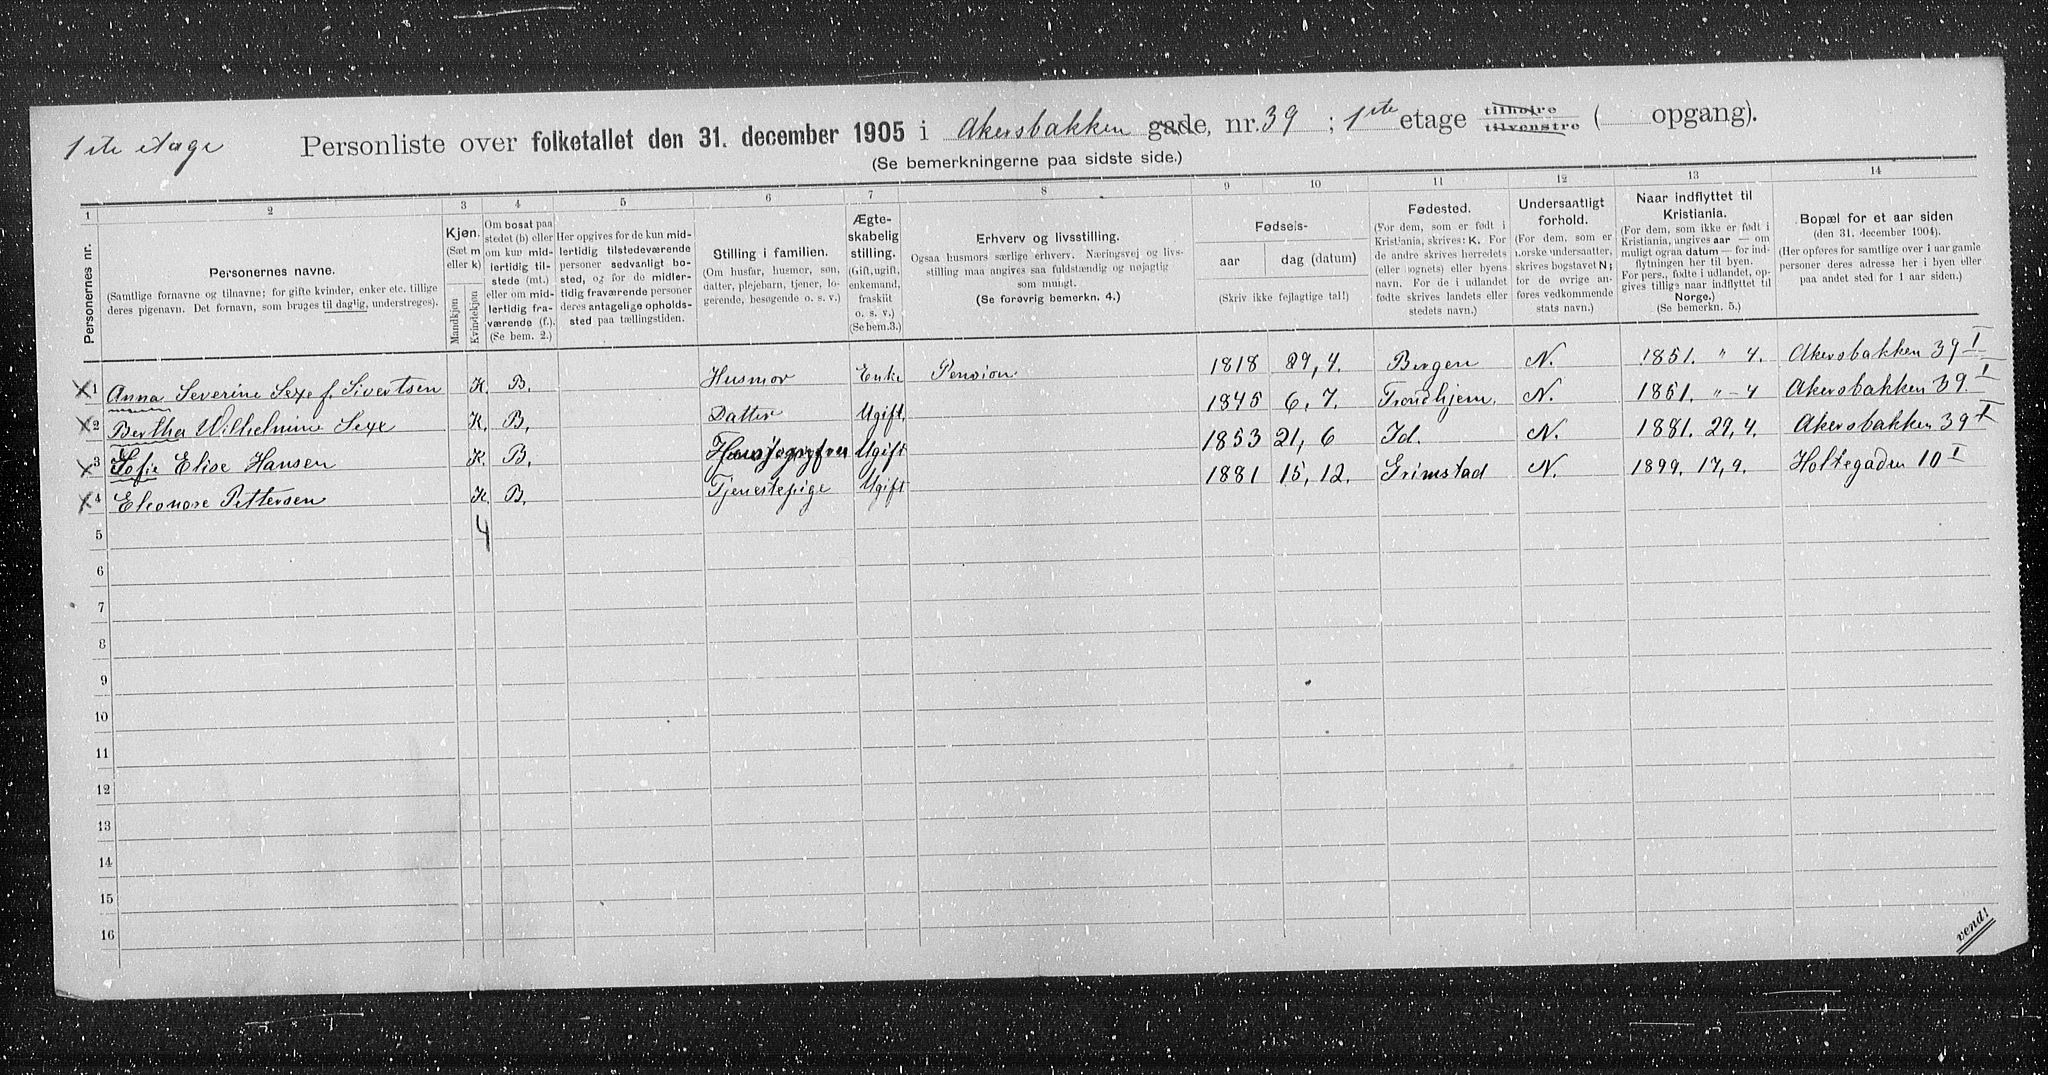 1ste etage
Personliste over folketallet den 31. december 1905 i Akersbakken gade, nr. 39 ; 1ste etage tilhøire tilvenstre ( opgang).
(Se bemerkningerne paa sidste side.)
1 2 3 4 5 6 7 8 9 10 11 12 13 14
Personernes nr.
Personernes navne.
(Samtlige fornavne og tilnavne; for gifte kvinder, enker etc. tillige
deres pigenavn. Det fornavn, som bruges til daglig, understreges).
Kjøn.
(Sæt m
eller k)
Mandkjøn
Kvindekjøn
Om bosat paa
stedet (b) eller
om kun mid-
lertidig til-
stede (mt.)
eller om mid-
lertidig fra-
værende (f.).
(Se bem. 2.)
Her opgives for de kun mid-
lertidig tilstedeværende
personer sedvanlig bo-
sted, og for de midler-
tidig fraværende personer
deres antagelige opholds-
sted paa tællingstiden.
Stilling i familien.
(Om husfar, husmor, søn,
datter, plejebarn, tjener, lo-
gerende, besøgende o. s. v.)
Ægte-
skabelig
stilling.
(Gift, ugift,
enkemand,
fraskilt
o. s. v.)
(Se bem. 3.)
Erhverv og livsstilling.
Ogsaa husmors særlige erhverv. Næringsvej og livs-
stilling maa angives saa fuldstændig og nøjagtig
som muligt.
(Se forøvrig bemerkn. 4.)
Fødsels-
aar dag (datum)
(Skriv ikke fejlagtige tal!)
Fødested.
(For dem, som er født i
Kristiania, skrives: K. For
de andre skrives herredets
(eller sognets) eller byens
navn. For de i udlandet
fødte skrives landets eller
stedets navn.)
Undersaatligt
forhold.
(For dem, som er
norske undersaatter,
skrives bogstavet N;
for de øvrige an-
føres vedkommende
stats navn.)
Naar indflyttet til
Kristiania.
(For dem, som ikke er født i
Kristiania, angives aar — om
muligt ogsaa datum — for ind-
flytningen her til byen.
For pers., fødte i udlandet, op-
gives tillige naar indflyttet til
Norge.)
(Se bemerkn. 5.)
Bopæl for et aar siden
(den 31. december 1904).
(Her opføres for samtlige over 1 aar gamle
personer deres adresse her i byen eller
paa andet sted for 1 aar siden.)
1 Anna Severine Sexe f. Sivertsen K. B. Husmor Enke Pension 1818 29, 4. Bergen N. 1851. " 4. Akersbakken 39 I
2 Bertha Wilhelmine Sexe K. B. Datter Ugift 1845 6, 7. Trondhjem N. 1851. " 4 Akersbakken 39 I
3 Sofie Elise Hansen K. B. Ugift 1853 21, 6 Id. N. 1881. 29, 4. Akersbakken 39 I
4 Eleonore Pettersen K. B. Tjenestepige Ugift 1881 15, 12. Grimstad N. 1899. 17, 9. Holtegaden 10 I
4
5
6
7
8
9
10
11
12
13
14
15
16
vend!